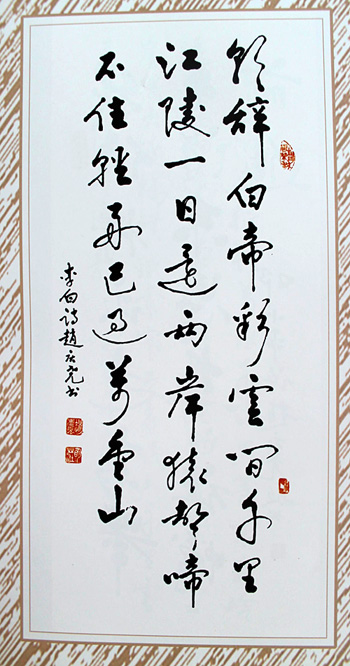 朝辞白帝彩雲間千里
江陵一日還兩岸猿聲啼
不住輕舟已過萬重山
李白詩趙書